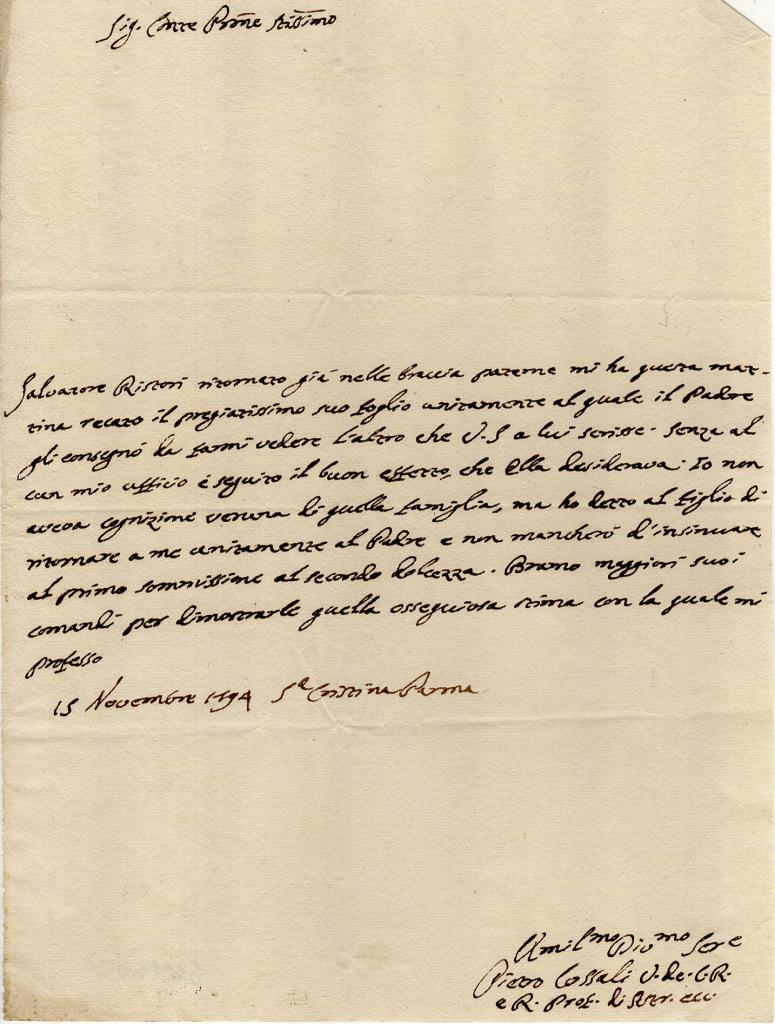 Sig. Conte Prōne Stimīssimo
Salvatore Ristori ritornato già nelle braccia paterne mi ha questa mat-
tina recato il pregiatissimo suo foglio unitamente al quale il Padre
gli consegnò da farmi vedere l'altro che V.S a lui scrisse. Senza al
cun mio ufficio è seguito il buon effetto, che Ella desiderava. Io non
aveva cognizione veruna di quella famiglia, ma ho detto al figlio di
ritornare a me unitamente al Padre e non mancherò d'insinuare
al primo sommissione al secondo dolcezza. Bramo maggiori suoi
comandi per dimostrarle quella ossequiosa stima con la quale mi
professo
15 Novembre 1794 Sa Cristina Parma
Umilmo Divmo Sere
Pietro Cossali C.R.
e R. Prof. di Astr. ecc.